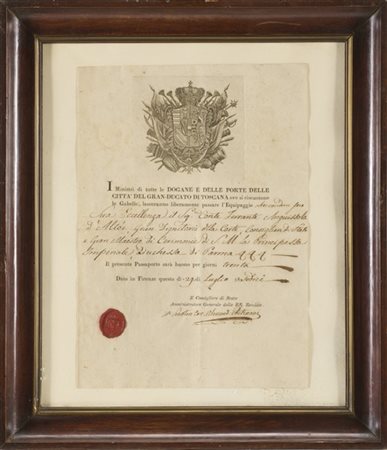 I Ministri di tutte le DOGANE E DELLE PORTE DELLE
CITTA' DEL GRAN-DUCATO DI TOSCANA ove si riscuotono
le Gabelle, lasceranno liberamente passare l'Equipaggio
Sua Eccellenza il Sig. Conte Ferrante Anguissola
d'Altoè, Gran Dignitario della Corte, Consigliere di Stato
e Gran Maestro di Ceremonie di S. M. la Principessa
Imperiale Duchessa di Parma
Il presente Passaporto sarà buono per giorni trenta
Data in Firenze questo dì 29 di Luglio
Il Consigliere di Stato
Amministratore Generale delle RR. Rendite